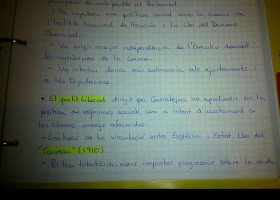 programa de més poder al Parlament.
- Va impulsar una política social amb la creació de
l'Instituto Nacional de Previsión i la Llei del Descans
Dominical.
- Va exigir major independència de l'Executiu davant
les ingerències de la Corona.
- Va intentar donar més autonomia als ajuntaments
a les Diputacions.
• El partit Liberal dirigit per Canalejas va aprofundir en la
política de reformes socials, com a intent d'acostament a
les classes menys afavorides.
- Limitació de la vinculació entre Església - Estat. Llei del
"Candau" (1910)
- Política tributària: nous impostos progressius sobre la renda